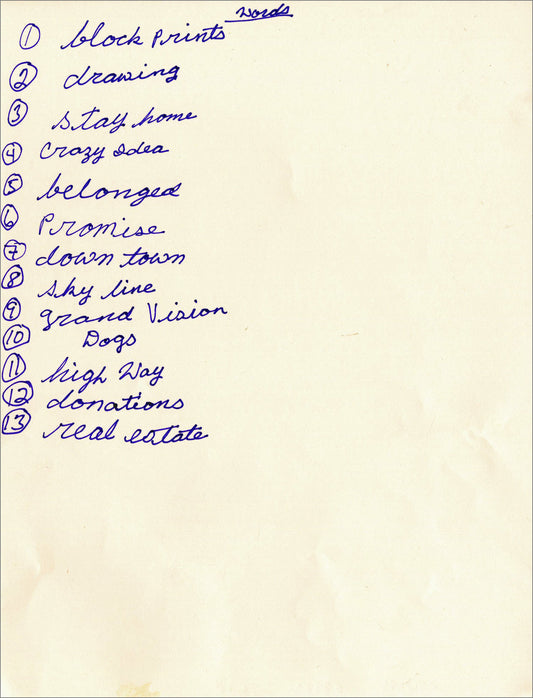 Words
1 block prints
2 drawing
3 stay home
4 Crazy idea
5 belonged
6 Promise
7 down town
8 sky line
9 grand Vision
10 Dogs
11 high Way
12 donations
13 real estate